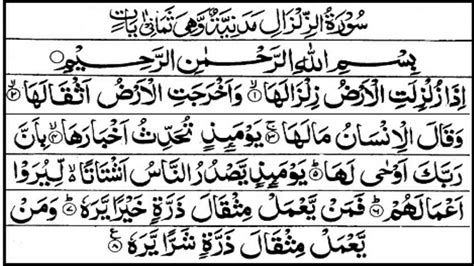 سُورَةُ الزِّلْزَالِ مَدَنِيَّةٌ وَّهِيَ ثَمَانِيْ اٰيَاتٍ
بِسْمِ اللّٰهِ الرَّحْمٰنِ الرَّحِيْمِ
اِذَا زُلْزِلَتِ الْاَرْضُ زِلْزَالَهَا ۙ﴿۱﴾ وَاَخْرَجَتِ الْاَرْضُ اَثْقَالَهَا ۙ﴿۲﴾
وَقَالَ الْاِنْسَانُ مَا لَهَا ۚ﴿۳﴾ يَوْمَئِذٍ تُحَدِّثُ اَخْبَارَهَا ۙ﴿۴﴾ بِاَنَّ
رَبَّكَ اَوْحٰى لَهَا ؕ﴿۵﴾ يَوْمَئِذٍ يَّصْدُرُ النَّاسُ اَشْتَاتًا ۙ۬ لِّيُرَوْا
اَعْمَالَهُمْ ؕ﴿۶﴾ فَمَنْ يَّعْمَلْ مِثْقَالَ ذَرَّةٍ خَيْرًا يَّرَهٗ ؕ﴿۷﴾ وَمَنْ
يَّعْمَلْ مِثْقَالَ ذَرَّةٍ شَرًّا يَّرَهٗ ﴿۸﴾